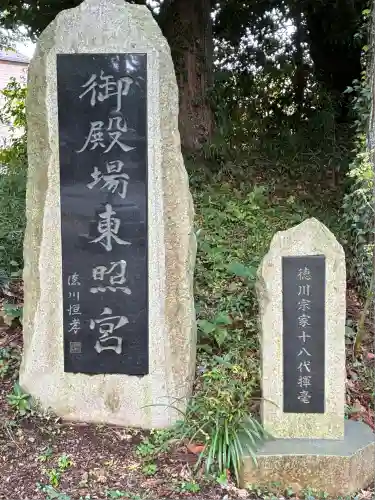 御殿場東照宮
徳川恒孝
徳川宗家十八代揮毫